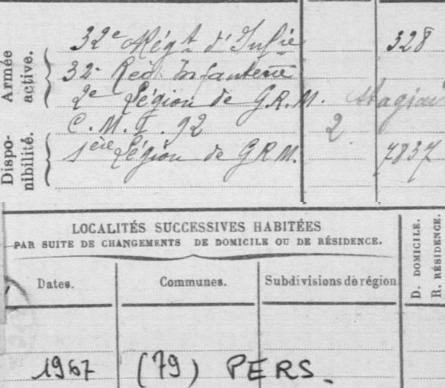 Armée active.
32e Régt d'Infie 328
32e Reg Infanterie
2e Légion de G.R.M. Stagiaire
Dispo-nibilité.
C.M.I. 92 2
1ère Légion de GRM. 7837
LOCALITÉS SUCCESSIVES HABITÉES
PAR SUITE DE CHANGEMENTS DE DOMICILE OU DE RÉSIDENCE.
D. DOMICILE.
R. RÉSIDENCE.
Dates. Communes. Subdivisions de région
1967 (79) PERS.